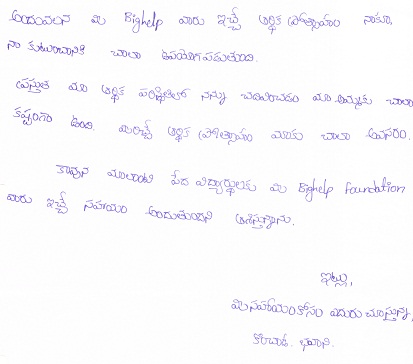 అందువలన మీ Bighelp వారు ఇచ్చే ఆర్థిక ప్రోత్సాహం నాకూ,
నా కుటుంబానికి చాలా ఉపయోగపడుతుంది.
ప్రస్తుత మా ఆర్థిక పరిస్థితిలో నన్ను చదివించడం మా అమ్మకు చాలా
కష్టంగా ఉంది. మీరిచ్చే ఆర్థిక ప్రోత్సాహం మాకు చాలా అవసరం.
కావున మాలాంటి పేద విద్యార్థులకు మీ Bighelp Foundation
వారు ఇచ్చే సహాయం అందుతుందని ఆశిస్తున్నాను.
ఇట్లు,
మీ సహాయం కోసం ఎదురు చూస్తున్న,
భవాని.